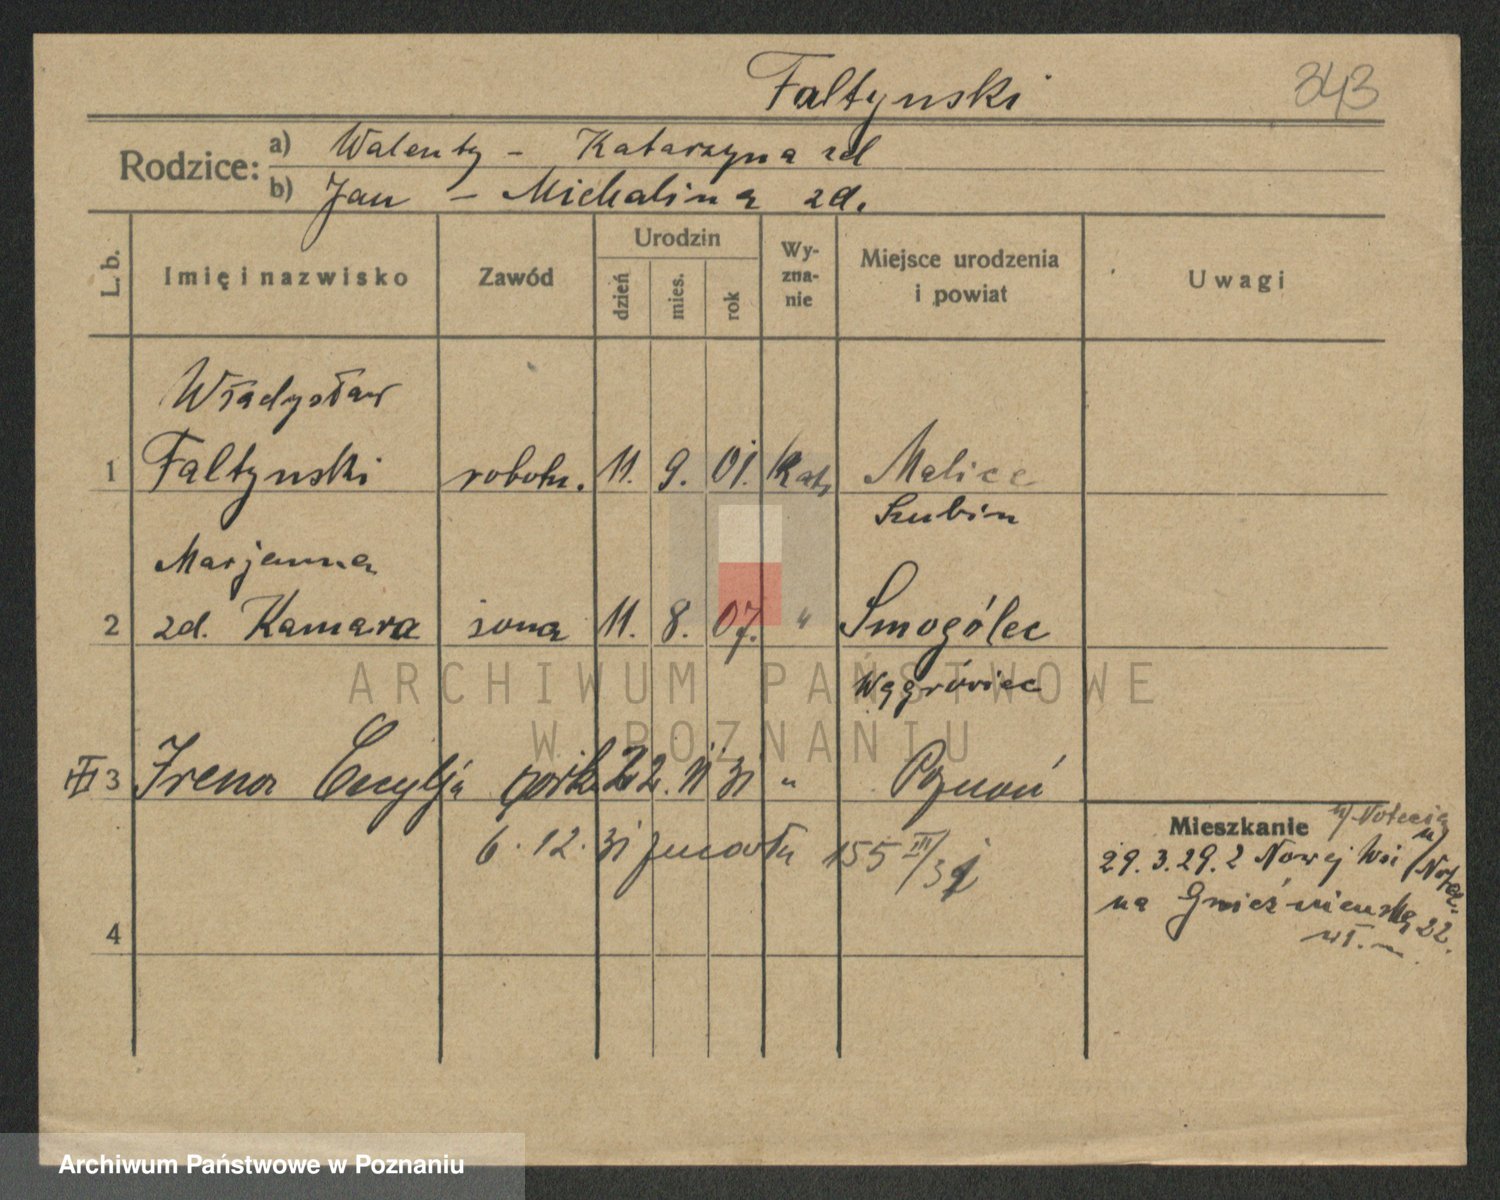 Faltynski
343
Rodzice:
a) Walenty - Katarzyna zd
b) Jan - Michalina zd.
L. b.
Imię i nazwisko
Zawód
Urodzin
dzień
mies.
rok
Wy-
zna-
nie
Miejsce urodzenia
i powiat
Uwagi
Władysław
1 Faltynski robotn. 11. 9. 01. Kat. Malice
Szubin
Marjanna
2 zd. Kamara żona 11. 8. 07. " Smogólec
Wągrówiec
III 3 Irena Emylja 22. 11 31 " Poznań
6. 12. 31 zmarła 155 III/31
Mieszkanie
29. 3. 29. z Nowej Wsi n/ Notecią
na Gnieźnienską 22.
4
ARCHIWUM PAŃSTWOWE
W POZNANIU
Archiwum Państwowe w Poznaniu